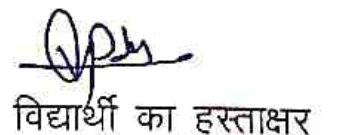 विद्यार्थी का हस्ताक्षर